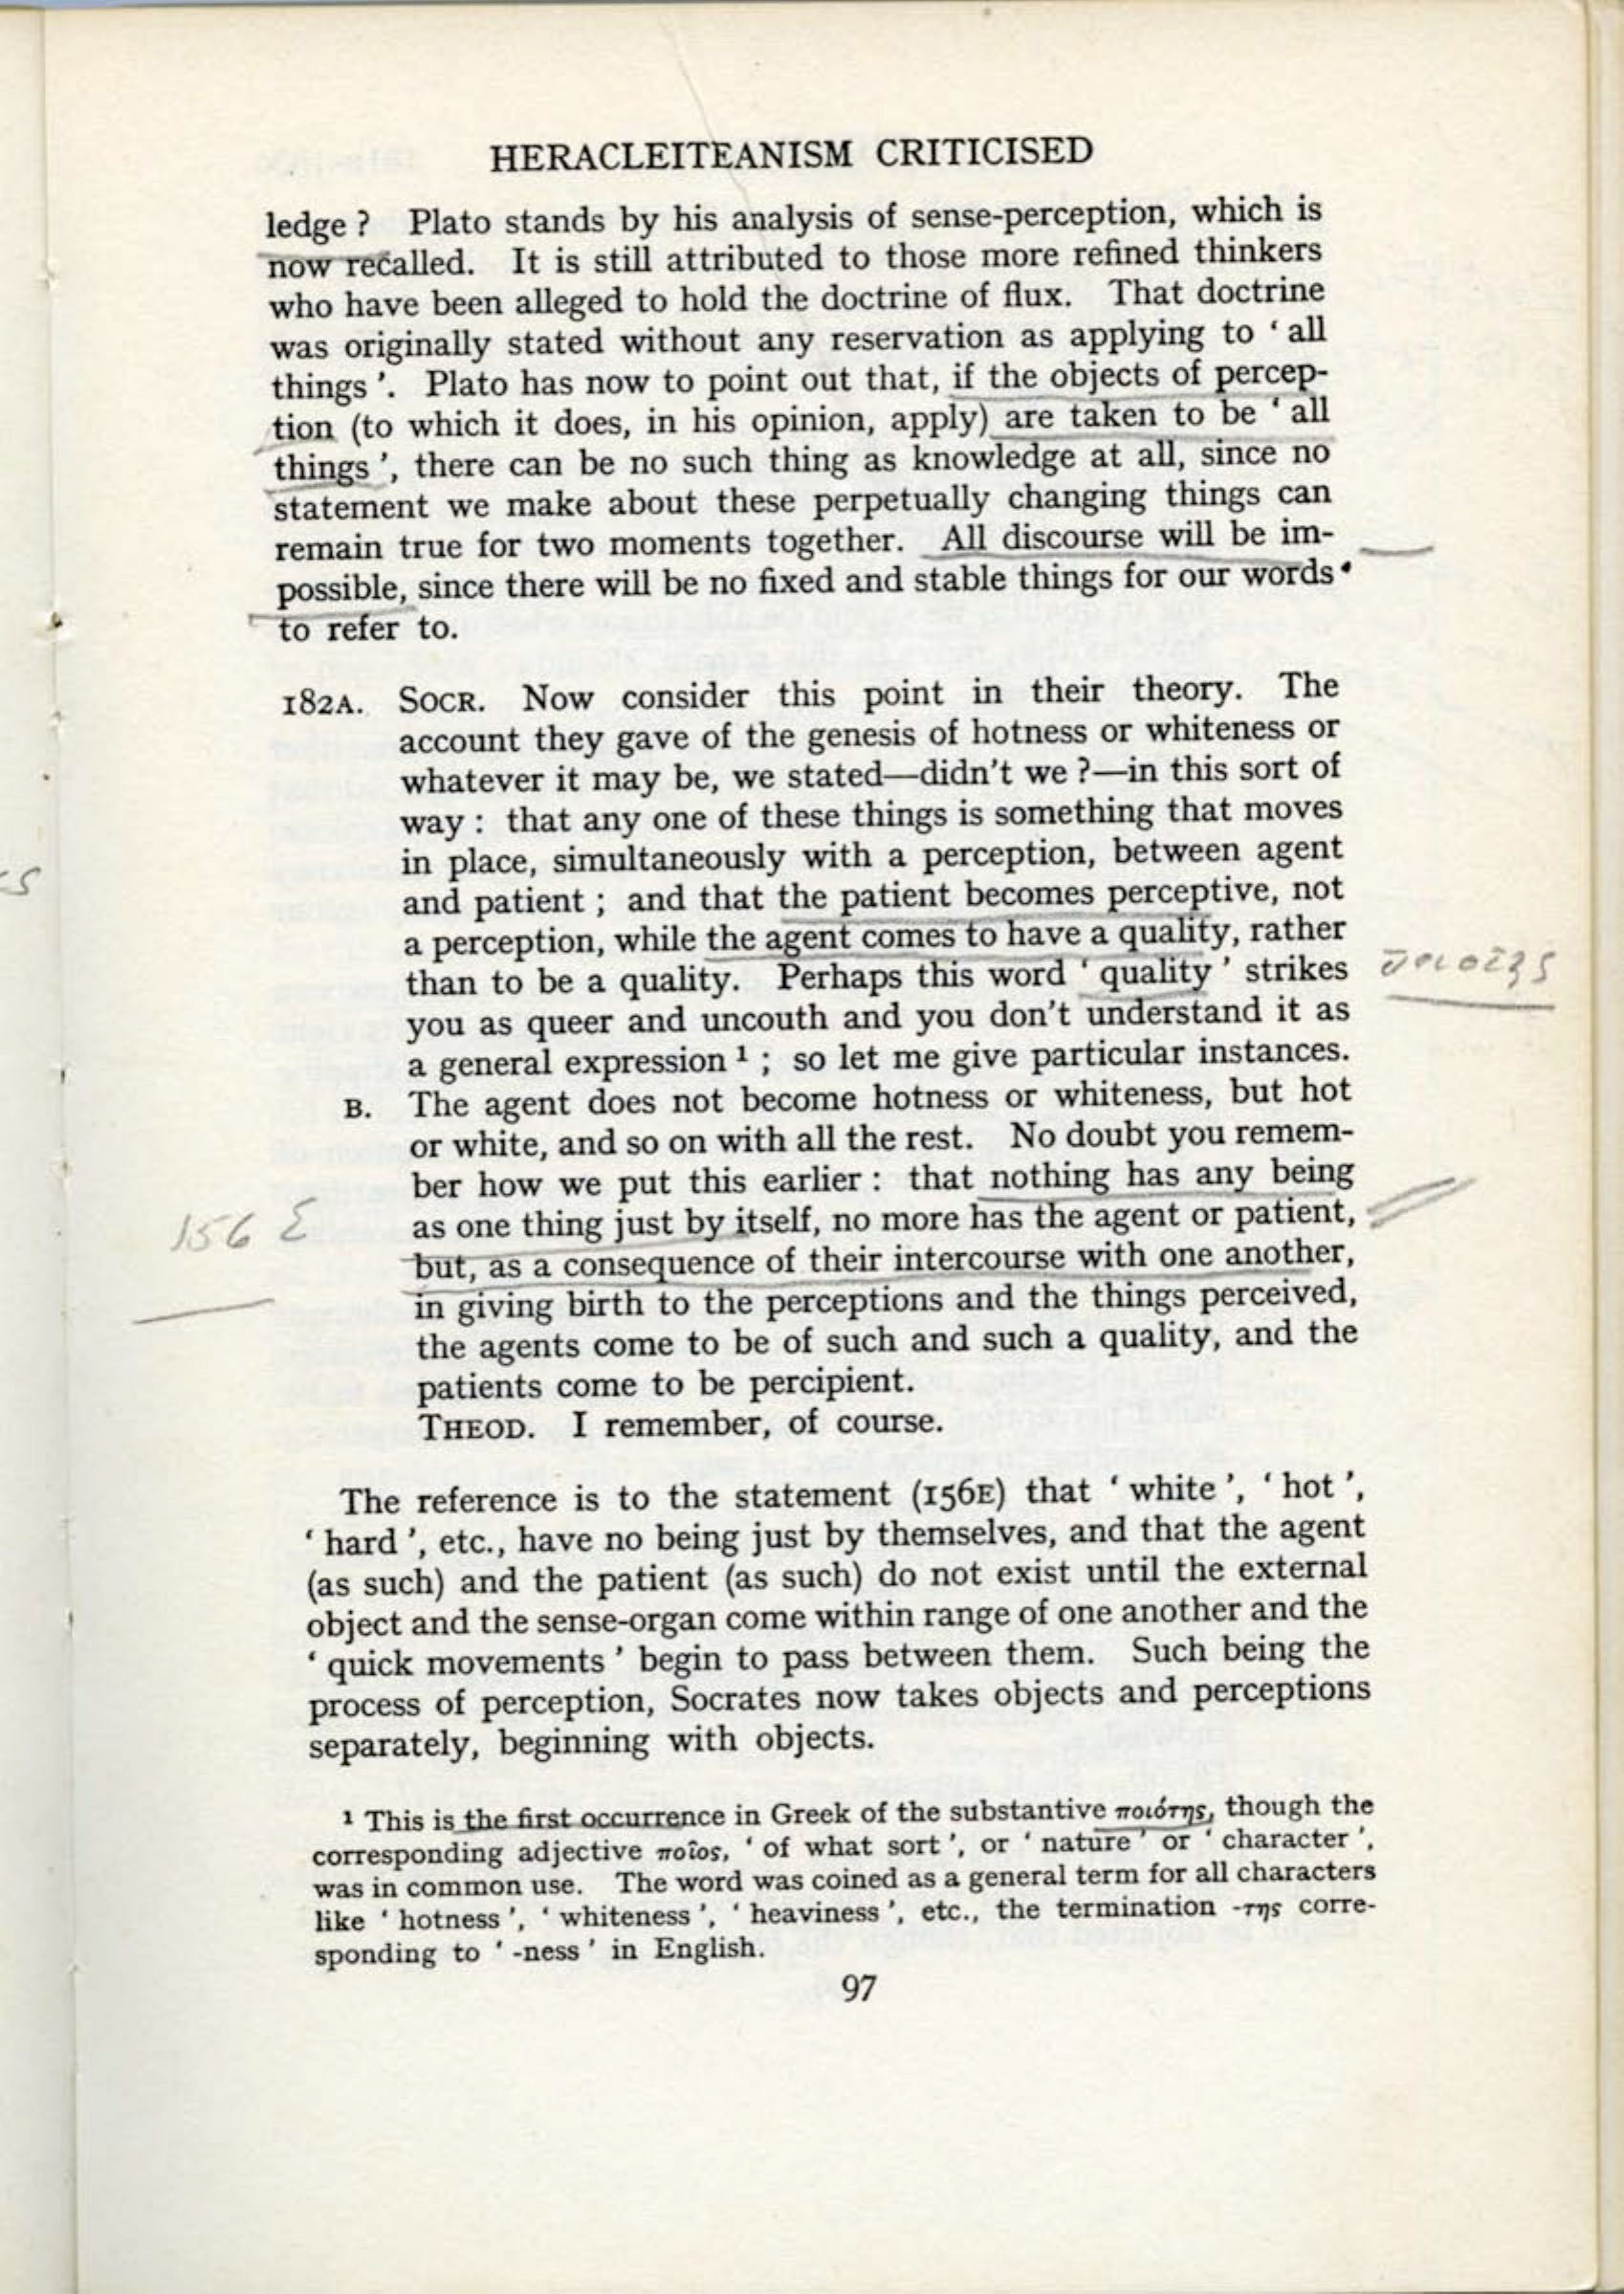 HERACLEITEANISM CRITICISED
ledge ? Plato stands by his analysis of sense-perception, which is
now recalled. It is still attributed to those more refined thinkers
who have been alleged to hold the doctrine of flux. That doctrine
was originally stated without any reservation as applying to ‘ all
things ’. Plato has now to point out that, if the objects of percep-
tion (to which it does, in his opinion, apply) are taken to be ‘ all
things ’, there can be no such thing as knowledge at all, since no
statement we make about these perpetually changing things can
remain true for two moments together. All discourse will be im-
possible, since there will be no fixed and stable things for our words
to refer to.
182A. SOCR. Now consider this point in their theory. The
account they gave of the genesis of hotness or whiteness or
whatever it may be, we stated—didn't we ?—in this sort of
way : that any one of these things is something that moves
in place, simultaneously with a perception, between agent
and patient ; and that the patient becomes perceptive, not
a perception, while the agent comes to have a quality, rather
than to be a quality. Perhaps this word ‘ quality ’ strikes
you as queer and uncouth and you don't understand it as
a general expression ¹ ; so let me give particular instances.
B. The agent does not become hotness or whiteness, but hot
or white, and so on with all the rest. No doubt you remem-
ber how we put this earlier : that nothing has any being
as one thing just by itself, no more has the agent or patient,
156 E
but, as a consequence of their intercourse with one another,
in giving birth to the perceptions and the things perceived,
the agents come to be of such and such a quality, and the
patients come to be percipient.
THEOD. I remember, of course.
The reference is to the statement (156E) that ‘ white ’, ‘ hot ’,
‘ hard ’, etc., have no being just by themselves, and that the agent
(as such) and the patient (as such) do not exist until the external
object and the sense-organ come within range of one another and the
‘ quick movements ’ begin to pass between them. Such being the
process of perception, Socrates now takes objects and perceptions
separately, beginning with objects.
¹ This is the first occurrence in Greek of the substantive ποιότης, though the
corresponding adjective ποῖος, ‘ of what sort ’, or ‘ nature ’ or ‘ character ’,
was in common use. The word was coined as a general term for all characters
like ‘ hotness ’, ‘ whiteness ’, ‘ heaviness ’, etc., the termination -της corre-
sponding to ‘ -ness ’ in English.
97